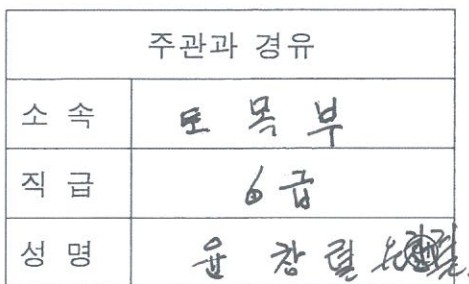 주관과 경유
소 속 토 목 부
직 급 6 급
성 명 윤 창 렬